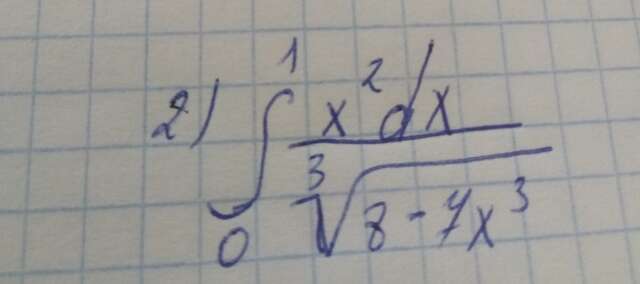 2) ∫₀¹ x²dx / ∛(8-7x³)